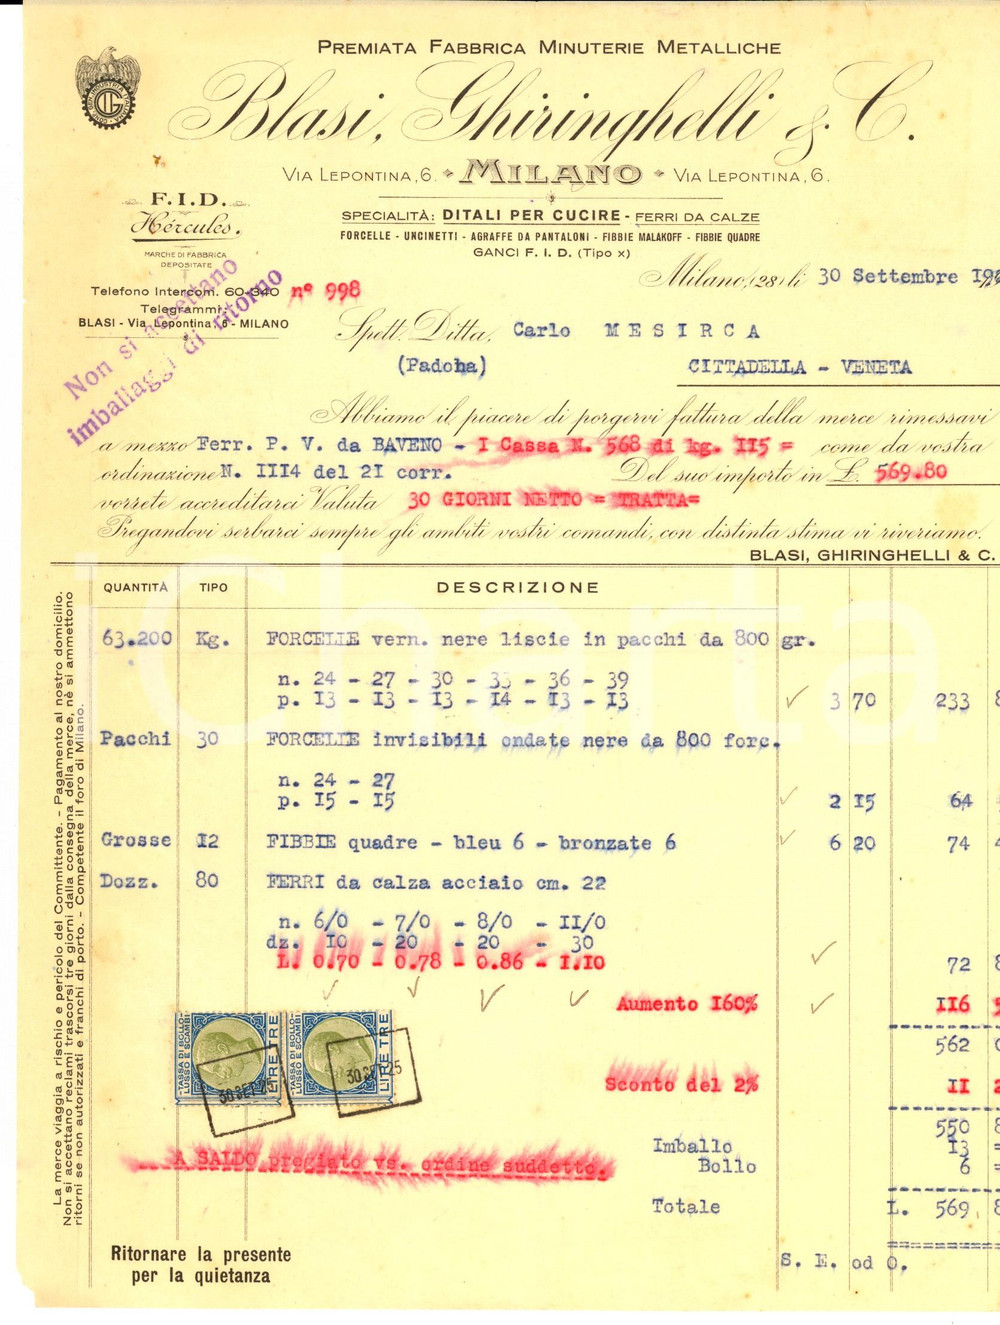 PREMIATA FABBRICA MINUTERIE METALLICHE
Blasi, Ghiringhelli & C.
VIA LEPONTINA, 6. MILANO VIA LEPONTINA, 6.
F.I.D.
Hércules.
MARCHE DI FABBRICA
DEPOSITATE
SPECIALITÀ: DITALI PER CUCIRE - FERRI DA CALZE
FORCELLE - UNCINETTI - AGRAFFE DA PANTALONI - FIBBIE MALAKOFF - FIBBIE QUADRE
GANCI F. I. D. (Tipo x)
Milano, (28) li 30 Settembre 19
Telefono Intercom. 60-340 n° 998
Telegrammi:
BLASI - Via Lepontina, 6 - MILANO
Non si accettano
imballaggi di ritorno
Spett. Ditta, Carlo MESIRCA
(Padoha) CITTADELLA - VENETA
Abbiamo il piacere di porgervi fattura della merce rimessavi
a mezzo Ferr. P. V. da BAVENO - I Cassa N. 568 di kg. II5 = come da vostra
ordinazione N. III4 del 2I corr. Del suo importo in £. 569.80
vorrete accreditarci Valuta 30 GIORNI NETTO = TRATTA=
Pregandovi serbarci sempre gli ambiti vostri comandi, con distinta stima vi riveriamo.
BLASI, GHIRINGHELLI & C.
QUANTITÀ TIPO DESCRIZIONE
63.200 Kg. FORCELLE vern. nere liscie in pacchi da 800 gr.
n. 24 - 27 - 30 - 33 - 36 - 39
p. I3 - I3 - I3 - I4 - I3 - I3 3 70 233 8
Pacchi 30 FORCELLE invisibili ondate nere da 800 forc.
n. 24 - 27
p. I5 - I5 2 I5 64
Grosse I2 FIBBIE quadre - bleu 6 - bronzate 6 6 20 74 4
Dozz. 80 FERRI da calza acciaio cm. 22
n. 6/0 - 7/0 - 8/0 - II/0
dz. I0 - 20 - 20 - 30
L. 0.70 - 0.78 - 0.86 - I.I0 72 8
Aumento I60% II6 5
562 0
Sconto del 2% II 2
550 8
Imballo I3 =
Bollo 6 =
Totale L. 569 8
TASSA DI BOLLO
LUSSO E SCAMBI
LIRE TRE
30 SET 25
TASSA DI BOLLO
LUSSO E SCAMBI
LIRE TRE
30 SET 25
A SALDO pregiato vs. ordine suddetto.
Ritornare la presente
per la quietanza
S. E. od O.
La merce viaggia a rischio e pericolo del Committente. - Pagamento al nostro domicilio.
Non si accettano reclami trascorsi tre giorni dalla consegna della merce, nè si ammettono
ritorni se non autorizzati e franchi di porto. - Competente il foro di Milano.